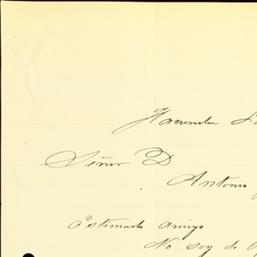 Hacienda
Señor D
Antonio
Estimado amigo
No soy de